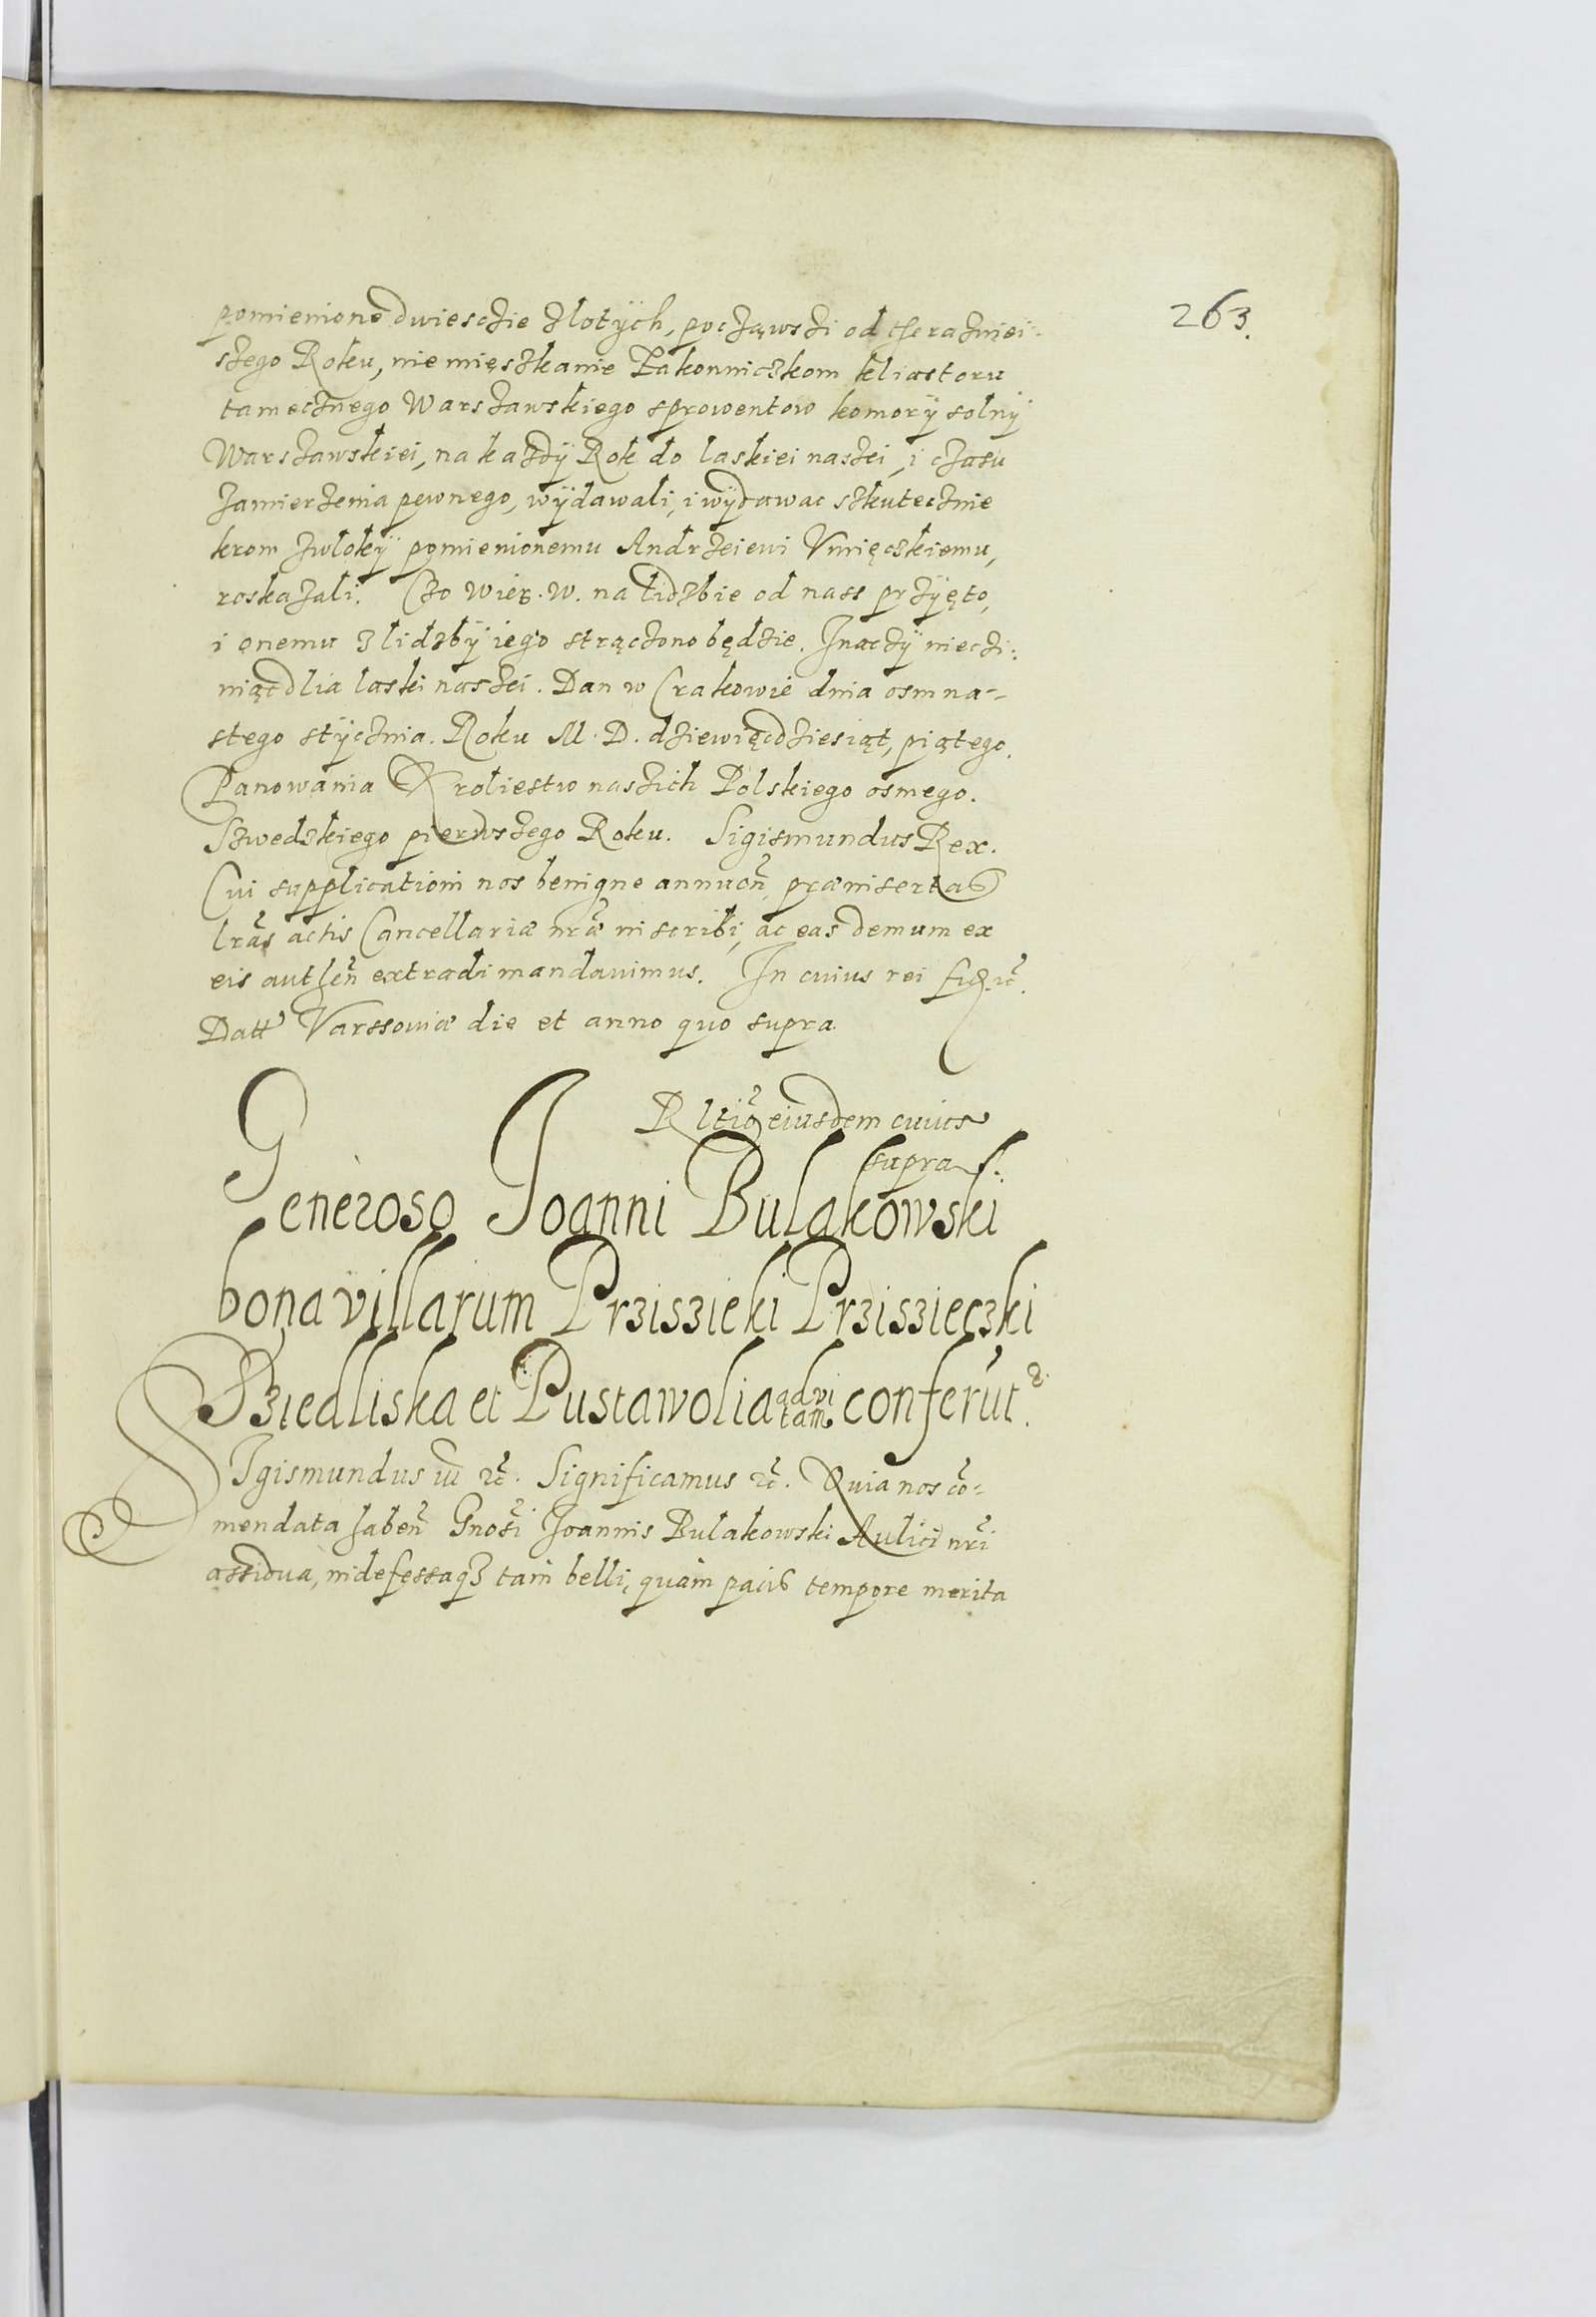 263.
pomienione dwiesczie złotÿch, pocz̨ąwszi od therazniei:
szego Roku, nie mięszkanie Zakonniczkom kliastoru
tamecznego Warszawskiego sprowentow komorÿ solnÿ
Warszawskiei, na kazdÿ Rok do laskiei naszei, i czasu
zamierzenia pewnego, wÿdawali, i wÿdawac szkutecznie
krom zwlokÿ pomienionemu Andrzeiewi Vmięczkiemu,
roskazali. Czo Wier. W. na lidzbie od nass przÿięto,
i onemu z lidzbÿ iego strączono będzie. Inaczÿ nieczi:
niąc dlia laski naszei. Dan w Crakowie dnia osmna-
stego stÿcznia. Roku M. D. dziewięcdziesiąt, piątego.
Panowania Kroliestw naszich Polskiego osmego.
Szwedzkiego pierwszego Roku. Sigismundus Rex.
Cui supplicationi nos benigne annuen̄ præinsertas
lrãs actis Cancellariæ nræ inscribi, ac eas demum ex
eis authen̄ extradi mandauimus. In cuius rei fid. rc̃.
Datt Varssouiæ die et anno quo supra
Rltio eiusdem cuius
supra f.
Generoso Joanni Bulakowski
bona villarum Prziszieki Prziszieczki
Sziedliska et Pustawolia ad vi
tam conferũt.
SIgismundus iii rc̃. Significamus rc̃. Quia nos cõ-
mendata haben̄ Gnosi Joannis Bulakowski Aulici nrĩ
assidua, indefessaqȝ tam belli, quàm pacis tempore merita